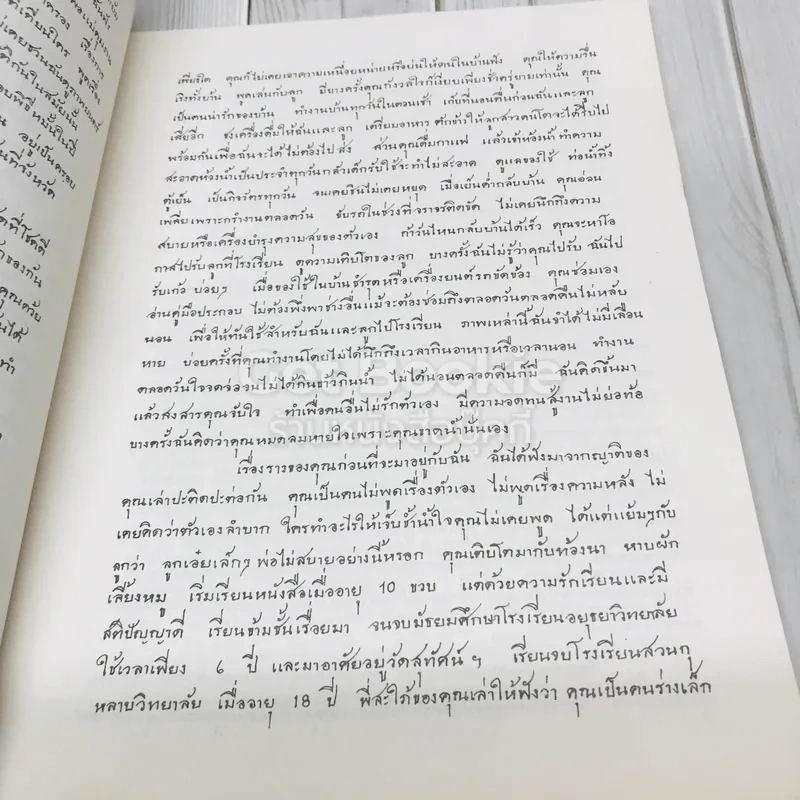 เพียงใด คุณก็ไม่เคยเอาความเหนื่อยหน่ายหรือบ่นให้คนในบ้านฟัง คุณให้ความรื่น
เริงทั้งบ้าน พูดเล่นกับลูก มีบางครั้งคุณกังวลใจก็เงียบเพียงชั่วครู่ยามเท่านั้น คุณ
เป็นคนน่ารักของบ้าน ทำงานบ้านทุกวันในตอนเช้า เก็บที่นอนตื่นก่อนฉันและลูก
เสียอีก ชงเครื่องดื่มให้ฉันและลูก เตรียมอาหาร ตักข้าวให้ลูกสาวคนโตจะได้รีบไป
พร้อมกันเพื่อฉันจะได้ไม่ต้องไปส่ง ส่วนคุณดื่มกาแฟ แล้วเข้าห้องน้ำทำความ
สะอาดห้องน้ำเป็นประจำทุกวันกลัวเด็กรับใช้จะทำไม่สะอาด ดูแลของใช้ ท่อน้ำทิ้ง
ตู้เย็น เป็นกิจวัตรทุกวัน จนเคยชินไม่เคยหยุด เมื่อเย็นค่ำกลับบ้าน คุณอ่อน
เพลียเพราะกรำงานตลอดวัน ขับรถในช่วงที่จราจรติดขัด ไม่เคยนึกถึงความ
สบายหรือเครื่องบำรุงความสุขของตัวเอง ถ้าวันไหนกลับบ้านได้เร็ว คุณจะหาโอ
กาสไปรับลูกที่โรงเรียน ดูความเติบโตของลูก บางครั้งฉันไม่รู้ว่าคุณไปรับ ฉันไป
รับเก้อ บ่อยๆ เมื่อของใช้ในบ้านชำรุดหรือเครื่องยนต์รถขัดข้อง คุณซ่อมเอง
อ่านคู่มือประกอบ ไม่ต้องพึ่งพาช่างอื่นแม้จะต้องซ่อมถึงตลอดวันตลอดคืนไม่หลับ
นอน เพื่อให้ทันใช้สำหรับฉันและลูกไปโรงเรียน ภาพเหล่านี้ฉันจำได้ไม่มีเลือน
หาย บ่อยครั้งที่คุณทำงานโดยไม่ได้นึกถึงเวลากินอาหารหรือเวลานอน ทำงาน
ตลอดวันใจจดจ่อจนไม่ได้กินข้าวกินน้ำ ไม่ได้นอนตลอดคืนก็มี ฉันคิดขึ้นมา
แล้วสงสารคุณจับใจ ทำเพื่อคนอื่นไม่รักตัวเอง มีความอดทนสู้งานไม่ย่อท้อ
บางครั้งฉันคิดว่าคุณหมดลมหายใจเพราะคุณขาดน้ำนั่นเอง
เรื่องราวของคุณก่อนที่จะมาอยู่กับฉัน ฉันได้ฟังมาจากญาติของ
คุณเล่าปะติดปะต่อกัน คุณเป็นคนไม่พูดเรื่องตัวเอง ไม่พูดเรื่องความหลัง ไม่
เคยคิดว่าตัวเองลำบาก ใครทำอะไรให้เจ็บช้ำน้ำใจคุณไม่เคยพูด ได้แต่แย้มๆกับ
ลูกว่า ลูกเอ๋ยเล็กๆ พ่อไม่สบายอย่างนี้หรอก คุณเติบโตมากับท้องนา หาบผัก
เลี้ยงหมู เริ่มเรียนหนังสือเมื่ออายุ 10 ขวบ แต่ด้วยความรักเรียนและมี
สติปัญญาดี เรียนข้ามชั้นเรื่อยมา จนจบมัธยมศึกษาโรงเรียนอยุธยาวิทยาลัย
ใช้เวลาเพียง ๖ ปี และมาอาศัยอยู่วัดสุทัศน์ ฯ เรียนจบโรงเรียนสวนกุ
หลาบวิทยาลัย เมื่ออายุ 18 ปี พี่สะใภ้ของคุณเล่าให้ฟังว่า คุณเป็นคนร่างเล็ก